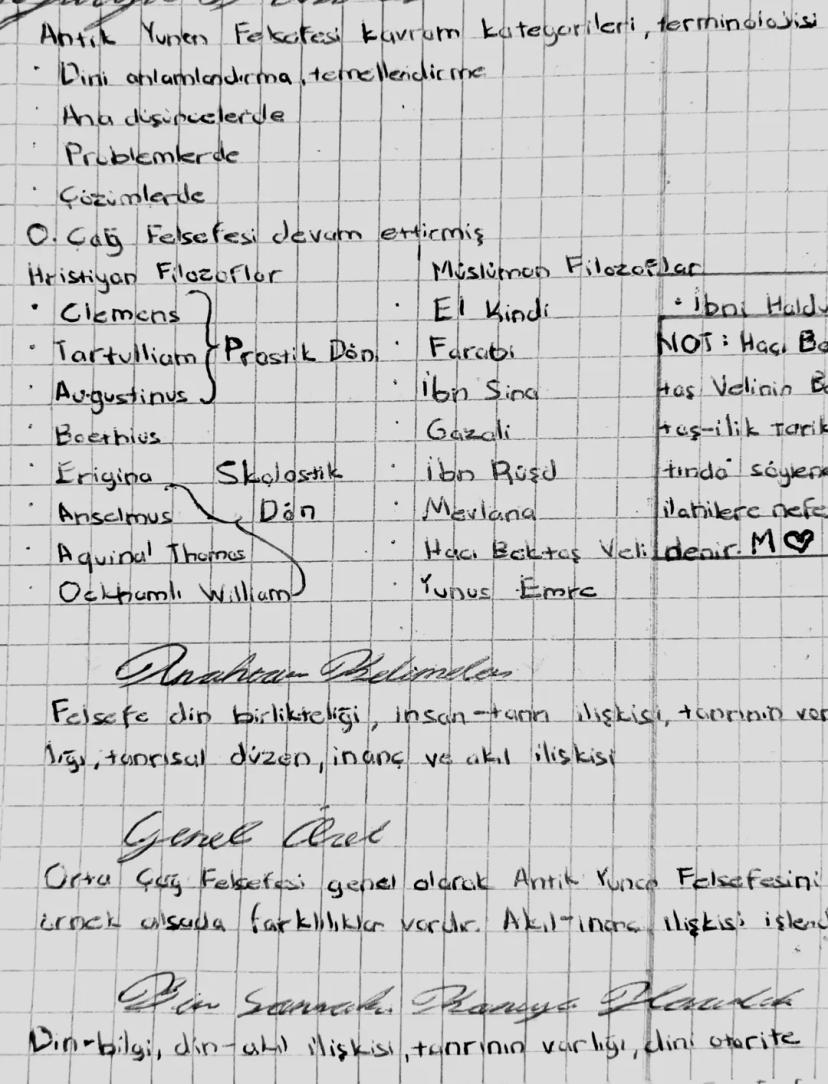 Antik Yunan Felsefesi kavram kategorileri, terminolojisi
· Dini anlamlandırma, temellendirme
· Ana düşüncelerde
· Problemlerde
· Çözümlerde
O. Çağ Felsefesi devam ettirmiş
Hristiyan Filozoflar
· Clemens
· Tartulliam
· Augustinus
Prostik Dön.
· Boethius
· Erigina
· Anselmus
· Aquinal Thomas
· Ockhamlı William
Skolostik
Dön
Müslüman Filozoflar
· El Kindi
· Farabi
· İbn Sina
· Gazali
· İbn Rüşd
· Mevlana
· Hacı Bektaş Veli
· Yunus Emre
· İbni Haldu
NOT: Hacı Be
taş Velinin Be
taş-ilik tarik
tında söylene
ilahilere nefe
denir. M♡
Anahtar Kelimeler
Felsefe din birlikteliği, insan-tanrı ilişkisi, tanrının var
lığı, tanrısal düzen, inanç ve akıl ilişkisi
Genel Özet
Orta Çağ Felsefesi genel olarak Antik Yunan Felsefesini
örnek alsada farklılıklar vardır. Akıl-inanç ilişkisi işlend
Din
Din-bilgi, din-akıl ilişkisi, tanrının varlığı, dini otorite